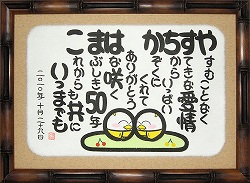 やすむことなく
すてきな愛情
ちからいっぱい
かぞくに
くれて
ありがとう
はな咲く
まぶしき50年
これからも共に
いつまでも
二〇一〇年 十月二十九日